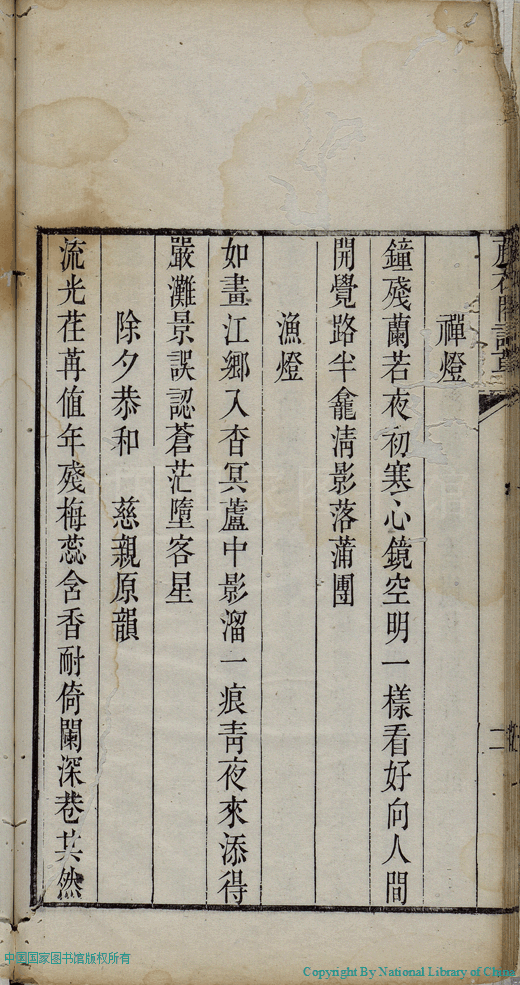 禪燈
鐘殘蘭若夜初寒心鏡空明一樣看好向人間
開覺路半龕淸影落蒲團
漁燈
如畫江鄉入杳冥蘆中影溜一痕靑夜來添得
嚴灘景誤認蒼茫墮客星
除夕恭和　慈親原韻
流光荏苒値年殘梅蕊含香耐倚闌深巷共然
二
中国国家图书馆版权所有
Copyright By National Library of China